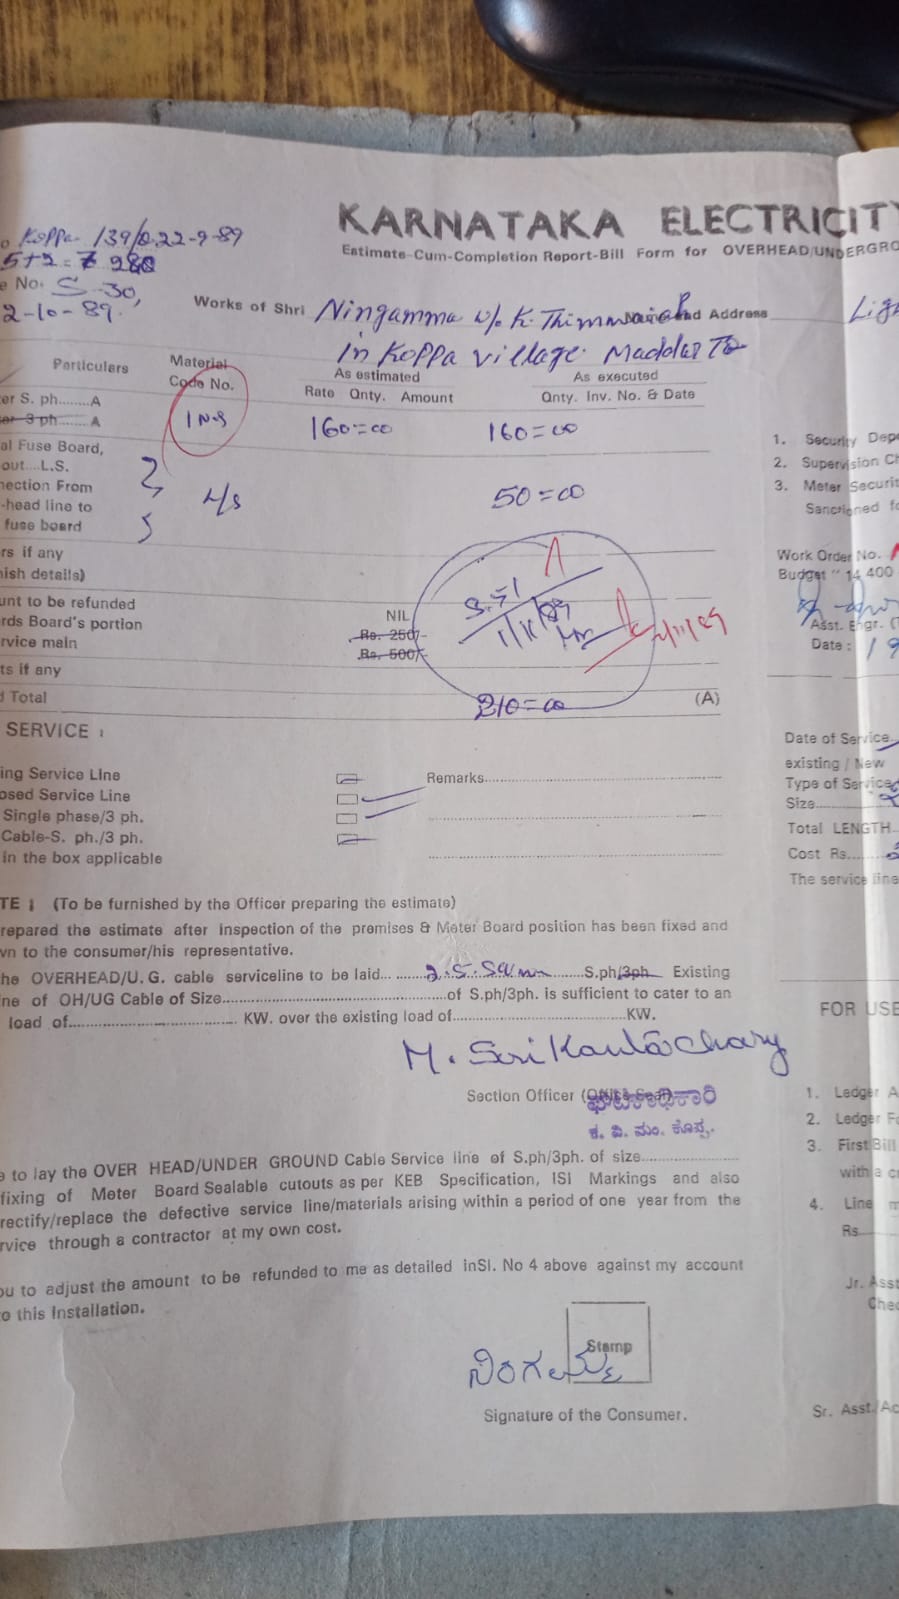 KARNATAKA ELECTRICITY
o Koppa 139/8.22-9-89
Estimate-Cum-Completion Report-Bill Form for OVERHEAD/UNDERGRO
5+2=7 280
e No. S-30,
2-10-89.
Works of Shri Ningamma w/o K. Thimmaiah Name and Address Ligh
in Koppa village Maddur Tq
Particulars Material Code No. As estimated As executed
Rate Qnty. Amount Qnty. Inv. No. & Date
er S. ph........A
er 3 ph........A 160=00 160=00
al Fuse Board,
out....L.S.
nection From L/S 50=00
-head line to
fuse board
rs if any
nish details)
unt to be refunded NIL
rds Board's portion Rs. 250/-
rvice main Rs. 500/-
ts if any
d Total 210=00 (A)
1. Security Depo
2. Supervision Ch
3. Meter Securit
Sanctioned fo
Work Order No.
Budget " 14 400
Asst. Engr. (
Date : 19
SERVICE :
ing Service Line Remarks
osed Service Line
Single phase/3 ph.
Cable-S. ph./3 ph.
in the box applicable
Date of Service
existing / New
Type of Service
Size
Total LENGTH
Cost Rs
The service line
TE : (To be furnished by the Officer preparing the estimate)
repared the estimate after inspection of the premises & Meter Board position has been fixed and
wn to the consumer/his representative.
he OVERHEAD/U.G. cable serviceline to be laid... 2.5 Sqmm S.ph/3ph Existing
ne of OH/UG Cable of Size of S.ph/3ph. is sufficient to cater to an
load of KW. over the existing load of KW.
M. Srikantachary
Section Officer (Office Seal)
ಘಟಕಾಧಿಕಾರಿ
ಕ. ವಿ. ಮಂ. ಕೊಪ್ಪ.
FOR USE
1. Ledger A
2. Ledger Fo
3. First Bill
with a cr
4. Line m
Rs
e to lay the OVER HEAD/UNDER GROUND Cable Service line of S.ph/3ph. of size
fixing of Meter Board Sealable cutouts as per KEB Specification, ISI Markings and also
rectify/replace the defective service line/materials arising within a period of one year from the
rvice through a contractor at my own cost.
ou to adjust the amount to be refunded to me as detailed inSI. No 4 above against my account
o this Installation.
Jr. Asst
Chec
Stamp
ನಿಂಗಮ್ಮ
Signature of the Consumer.
Sr. Asst./Ac